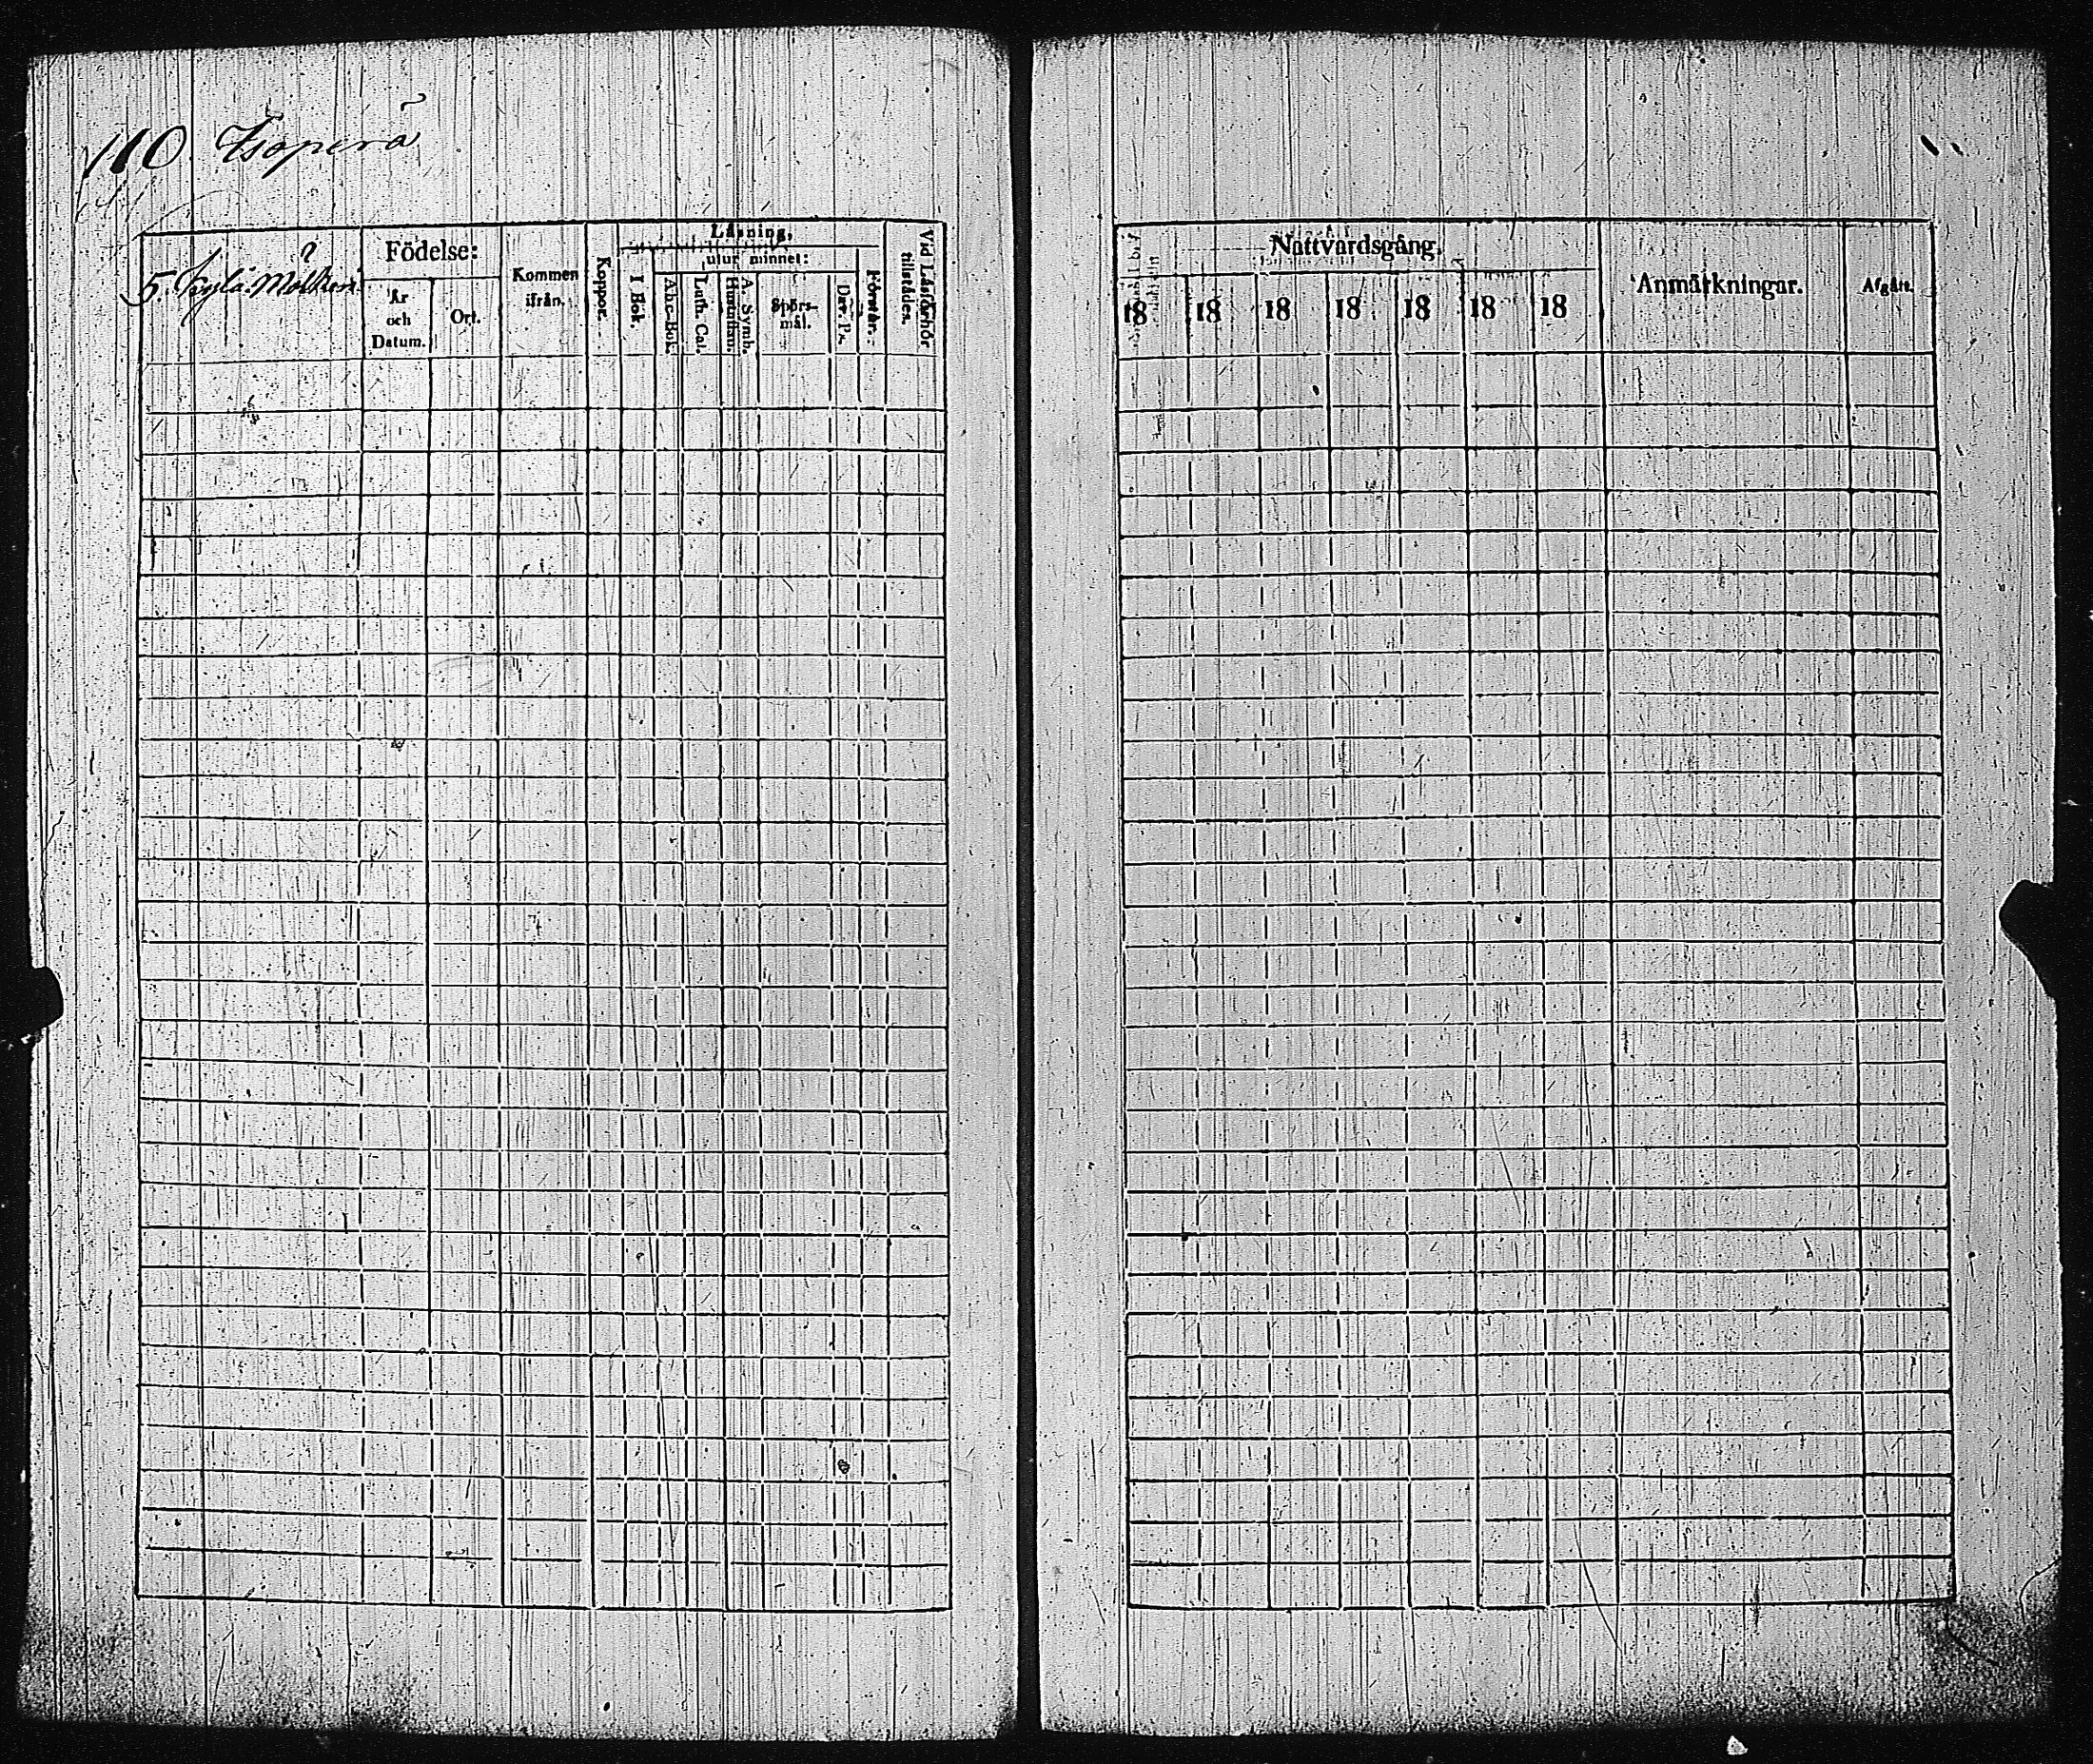 110 Isoperä
5.
Födelse:
År
och
Datum.
Ort.
Kommen
ifrån.
Koppor.
Läsning,
utur minnet:
I Bok.
Abc-Bok.
Luth. Cat.
A. Symb.
Hustaflan.
Spörs-
mål.
Dav. P.
Förstår.
Vid Läsförhör
tillstädes.
Nattvardsgång.
18 18 18 18 18 18 18
Anmärkningar.
Afgått.